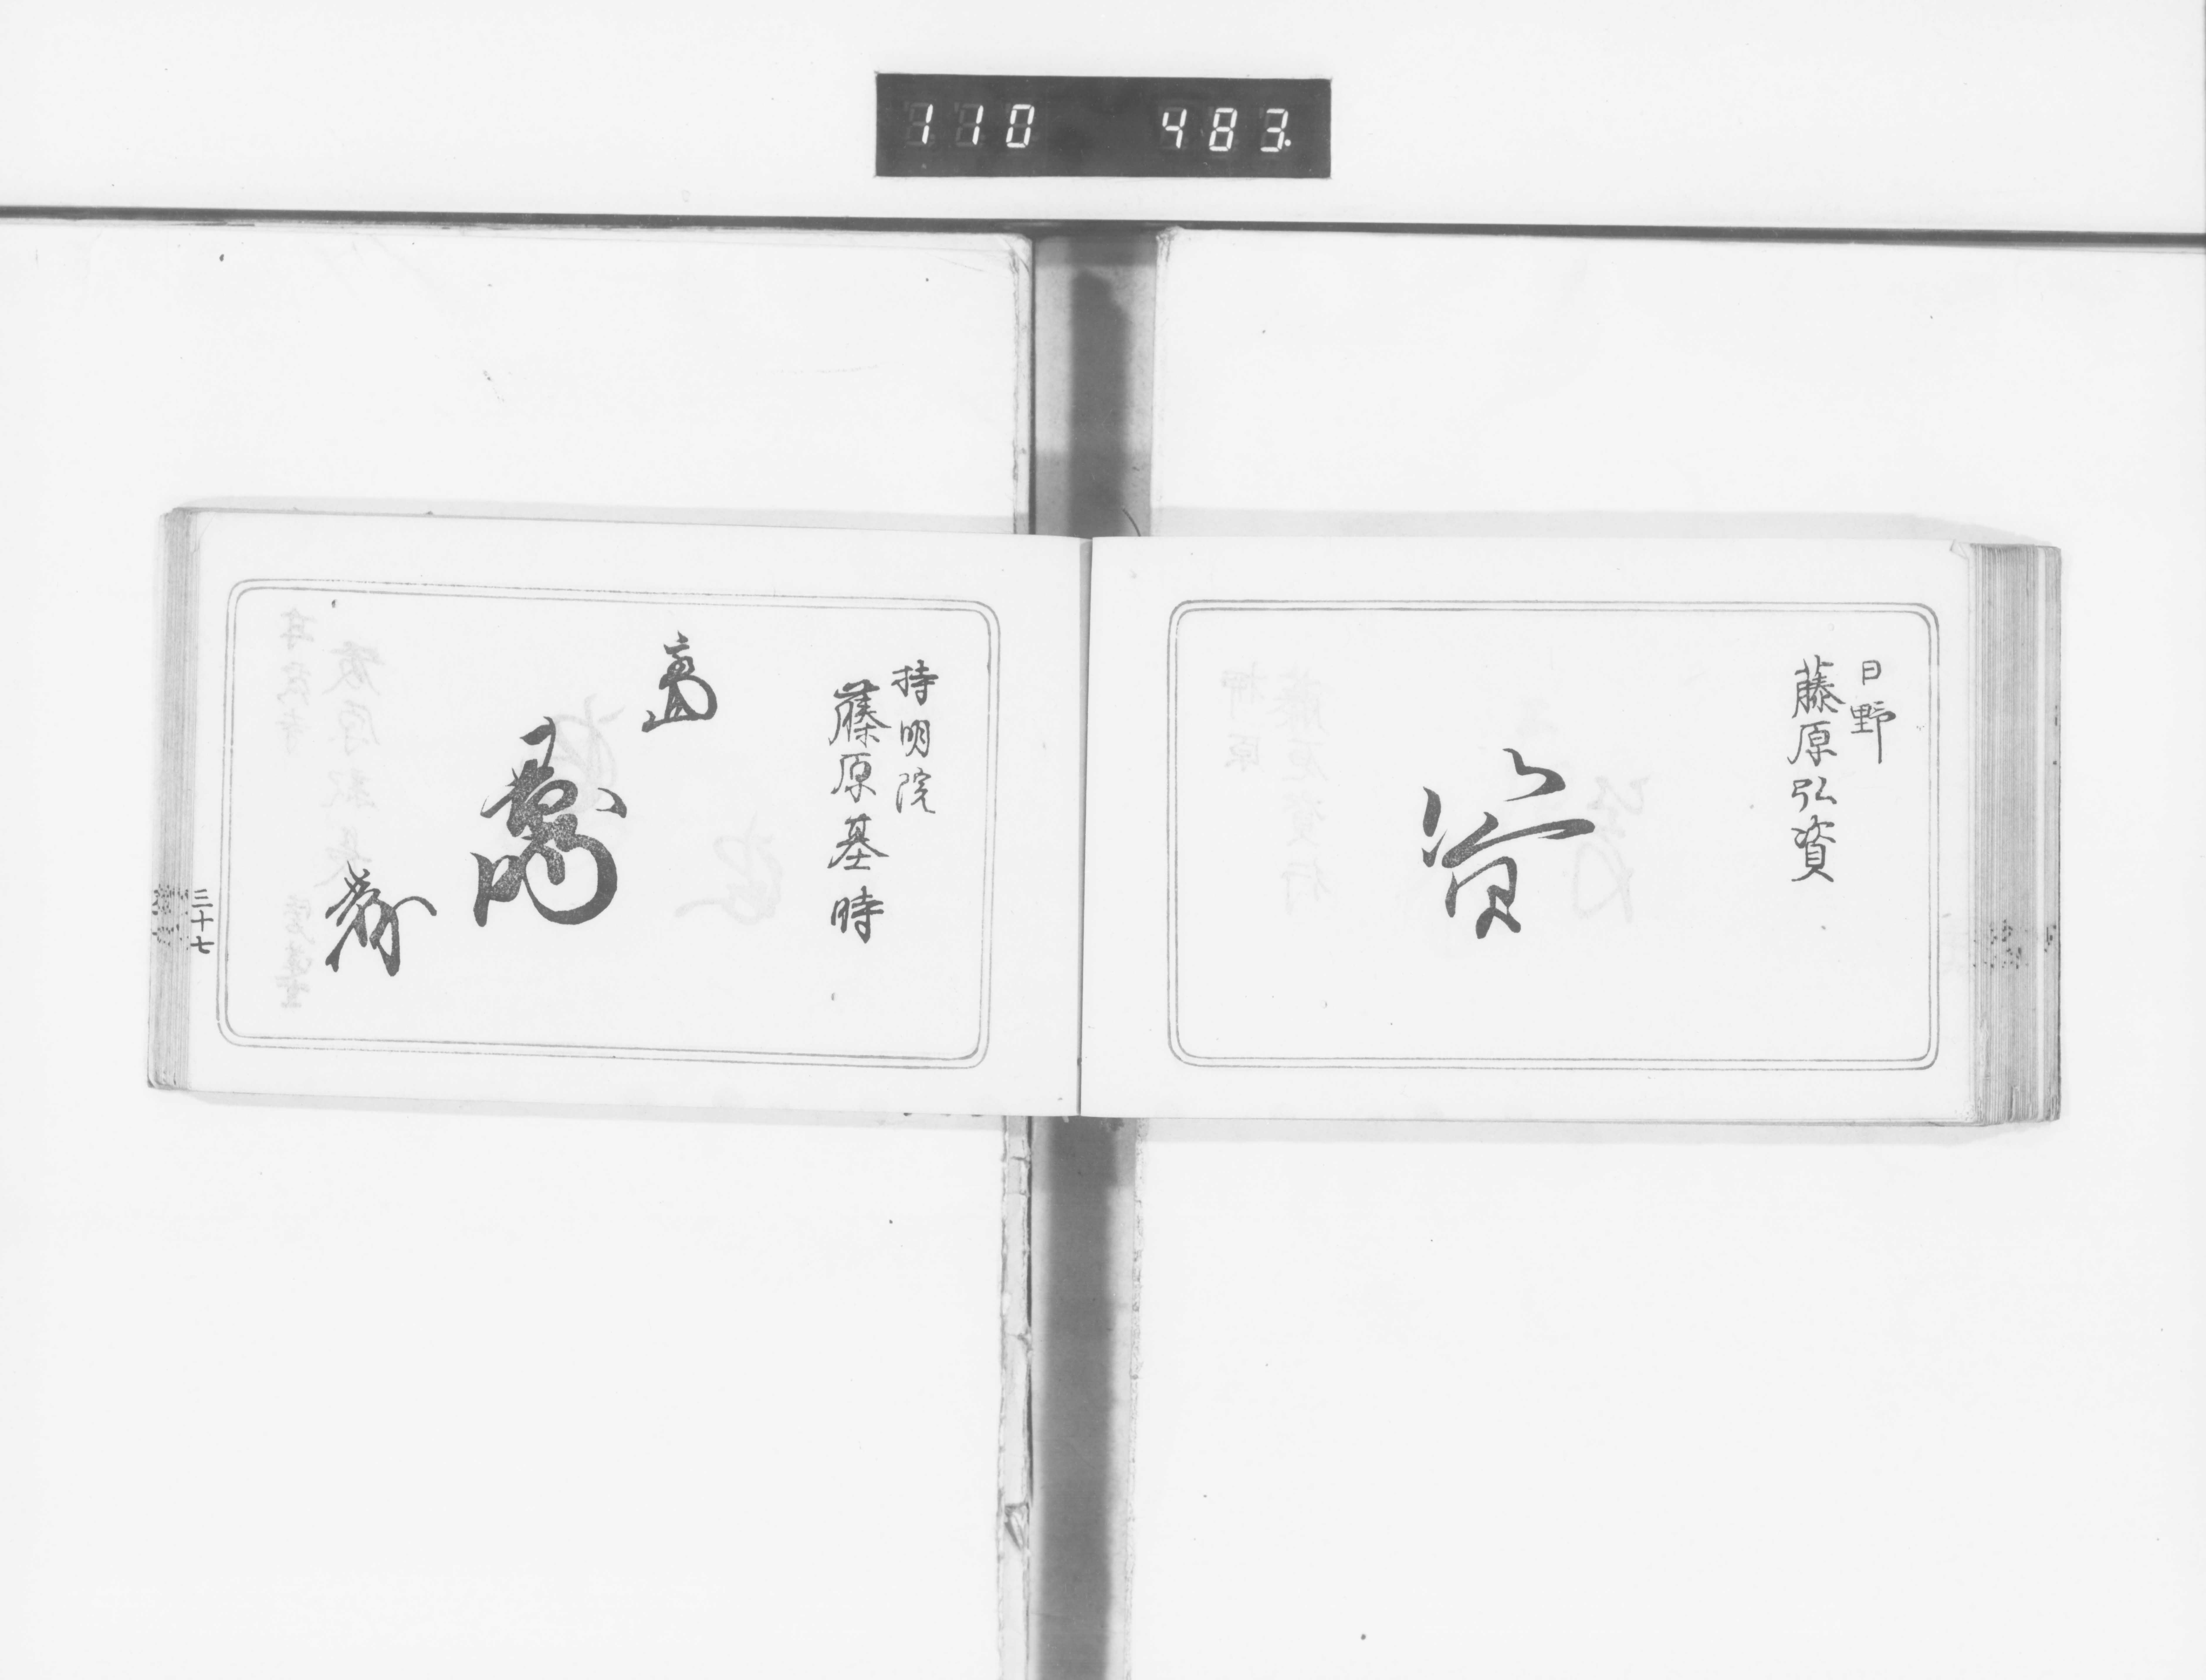 110 483.
日野
藤原弘資
持明院
藤原基時
三十七